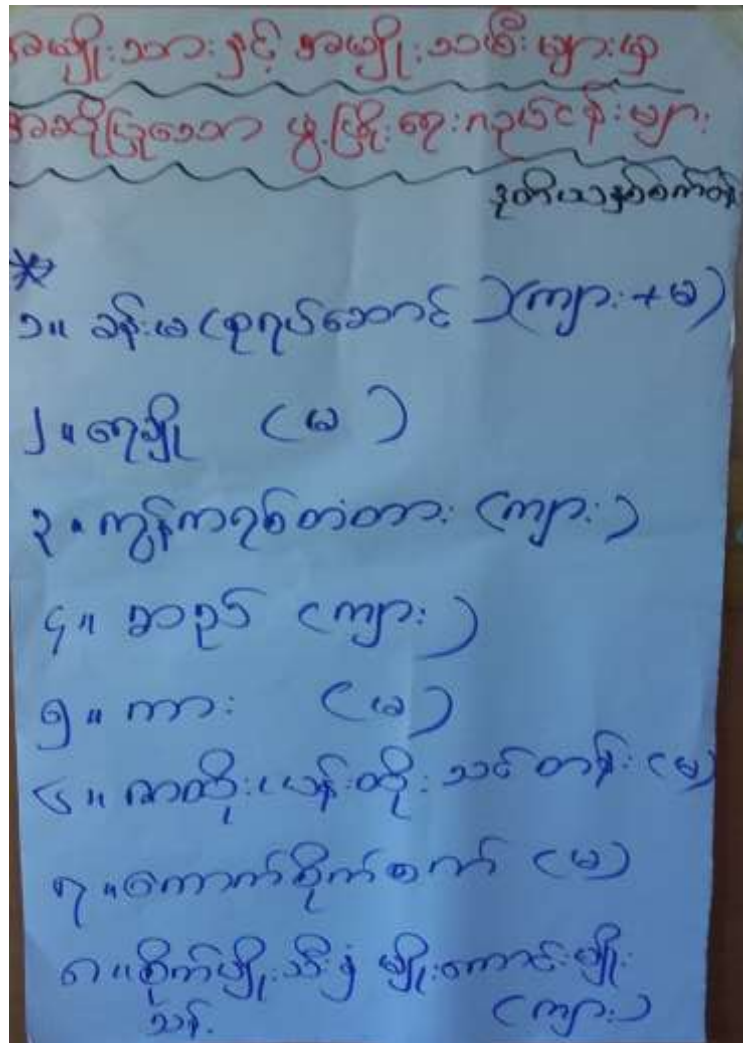 အမျိုးသားနှင့် အမျိုးသမီးများမှ
အဆိုပြုသော ဖွံ့ဖြိုးရေးလုပ်ငန်းများ
ဒုတိယနှစ်စက်ဝန်း
၁။ ခန်းမ (စုရပ်ဆောင်) (ကျား+မ)
၂။ ရေချို (မ)
၃။ ကွန်ကရစ်တံတား (ကျား)
၄။ ဆာဥပ် (ကျား)
၅။ ကား (မ)
၆။ ဇာထိုးပန်းထိုး သင်တန်း (မ)
၇။ ကောက်စိုက်စက် (မ)
၈။ စိုက်ပျိုးသီးနှံ မျိုးကောင်းမျိုး
သန့် (ကျား)